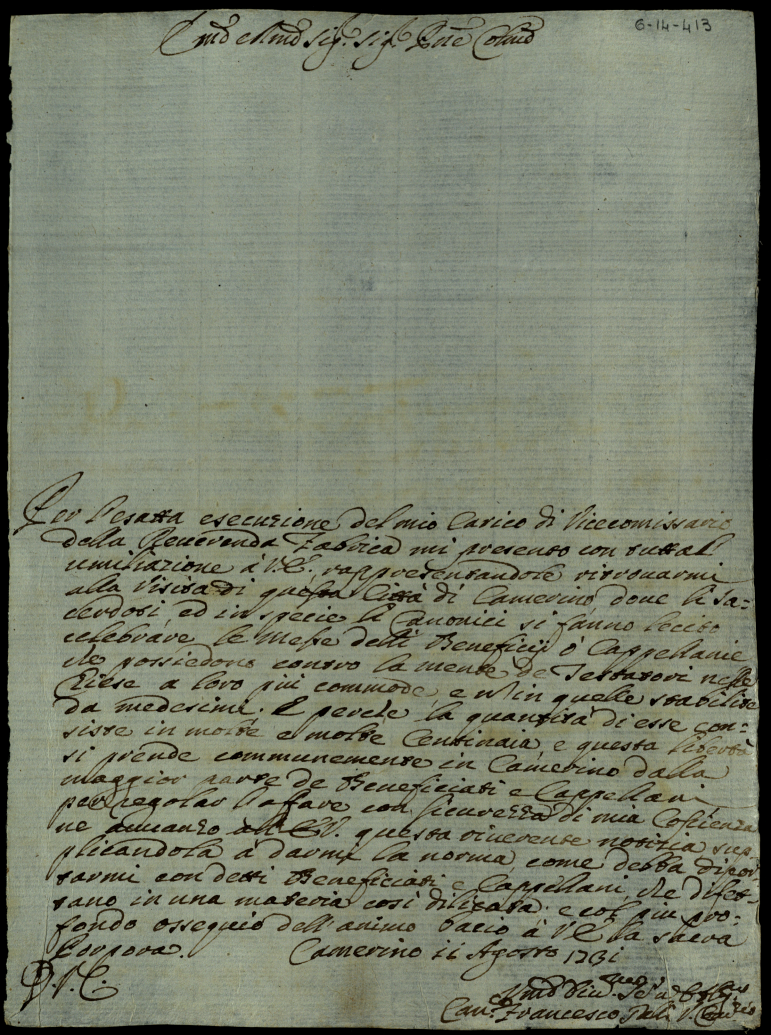 6-14-413
Em̃o e Rm̃o Sig.r Sig.r Pne Colm̃o
Per l'esatta esecuzione del mio Carico di Vicecomissario
della Reverenda Fabrica mi presento con tutta l'
umiliazione à V.E. rappresentandole ritrovarmi
alla Visita di questa Città di Camerino, dove li Sa=
cerdoti ed in specie li Canonici si fanno lecito
celebrare le Messe delli Beneficij ò Cappellanie
che possiedono contro la mente de Testatori nelle
Chiese a loro più commode, e nõ in quelle stabilite
da medesimi. E perche la quantità di esse con=
siste in molte e molte Centinaia, e questa libertà
si prende communemente in Camerino dalla
maggior parte de Beneficiati e Cappellani,
per regolar l'affare con sicurezza di mia Coscienza
ne avanzo all'E.V. questa riverente notizia sup=
plicandola à darmi la norma, come debba dipor=
tarmi con detti Beneficiati e Cappellani che difet=
tano in una materia così dilicata; e col più pro=
fondo ossequio dell'animo bacio à V.E. la Sacra
Porpora. Camerino 11 Agosto 1731
D.V.E.
Can.co Francesco